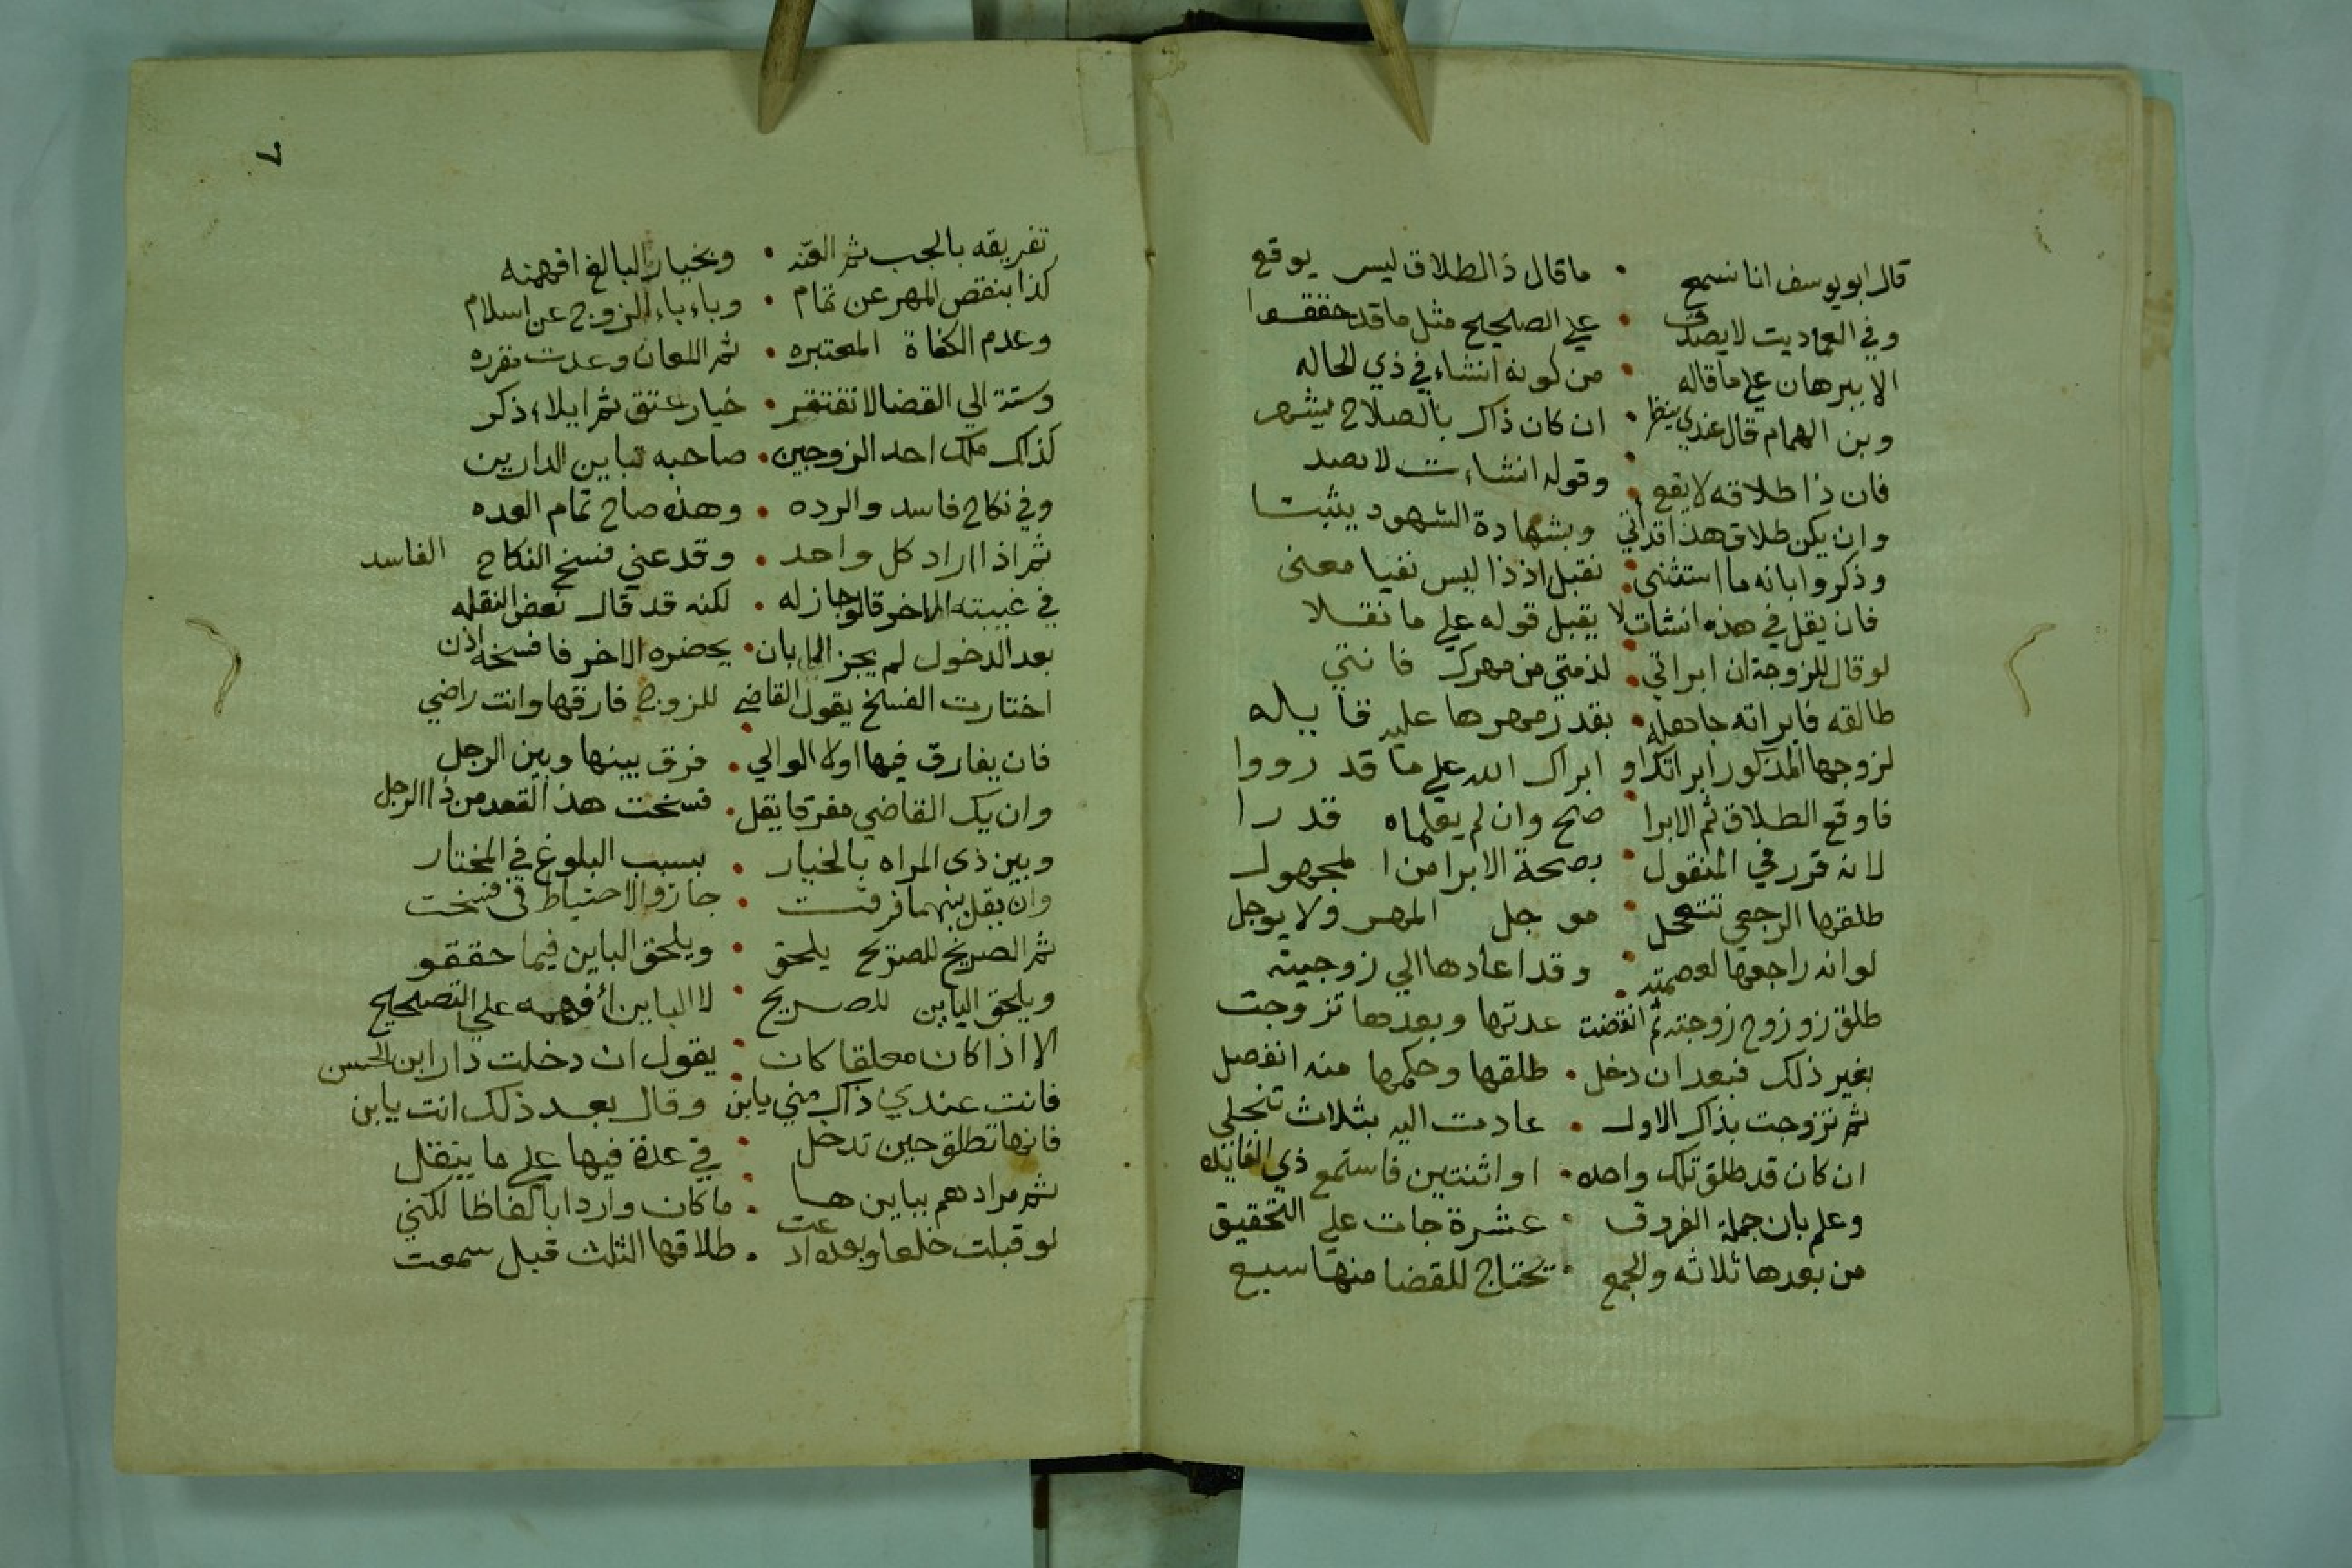 قال ابو يوسف انا نسمع • ما قال ذا لطلاق ليس يوقع
وفي العماديت لا يصدق • علي الصحيح مثل ما قد حققوا
الا ببرهان علي ما قاله • من كونه انشاء في ذي الحاله
وبن الهمام قال عندي ينظر • ان كان ذاك بالصلاح يشهر
فان ذا طلاقه لا يقع • وقوله انشاءت لا يصد
وان يكن طلاق هذا قداتي • وبشهادة الشهود يثبتا
وذكروا بانه ما استثنى • نقبل اذ ذا ليس نفيا معنى
فان يقل في هذه انشات لا • يقبل قوله علي ما نقلا
لو قال للزوجة ان ابراتي • لذمتي من مهرك فانتي
طالقه فابراته جاهله • بقدر مهرها عليه قابله
لزوجها المذكور ابراتك او • ابراك الله علي ما قد رووا
فاوقع الطلاق ثم الابرا • صح وان لم يعلماه قدرا
لانه قرر في المنقول • بصحة الابرا من المجهول
طلقها الرجعي تتعجل • موجل المهر ولا يوجل
لو انه راجعها لعصمته • وقد اعادها الي زوجيته
طلق زو زوج زوجته ثم انقضت • عدتها وبعدها تزوجت
بغير ذلك فبعد ان دخل • طلقها وحكمها منه انفصل
ثم تزوجت بذاك الاول • عادت اليه بثلاث تنجلي
ان كان قد طلق تلك واحده • او اثنتين فاستمع ذي الفائده
وعلم بان جملة الفروق • عشرة جات علي التحقيق
من بعدها ثلاثه والجمع • تحتاج للقضا منها سبع
٦
تفريقه بالجب ثم العنه • وبخيار البالغ افهمنه
كذا بنقص المهر عن تمام • وباءباء الزوج عن اسلام
وعدم الكفاة المعتبره • ثم اللعان وعدت مقرره
وستة الي القضا لا تفتقر • خيار عتق ثم ايلاء ذكر
كذاك ملك احد الزوجين • صاحبه تباين الدارين
وفي نكاح فاسد والرده • وهذه صاح تمام العده
ثم اذا اراد كل واحد • وقد عني فسخ النكاح الفاسد
في غيبته الاخر قالو جاز له • لكنه قد قال بعض النقله
بعد الدخول لم يجز الا بان • يحضره الاخر فافسخه اذن
اختارت الفسخ يقول القاضي • للزوج فارقها وانت راضي
فان يفارق فيها اولا الوالي • فرق بينها وبين الرجل
وان يك القاضي مفرقا يقل • فسخت هذ العقد من ذا الرجل
وبين ذي المراه بالخيار • بسبب البلوغ في المختار
وان يقل بينهما فرقت • جاز والاحتياط في فسخت
ثم الصريح للصريح يلحق • ويلحق الباين فيما حققو
ويلحق الباين للصريح • لا الباين أفهمه علي التصحيح
الا اذا كان معلقا كان • يقول ان دخلت دار ابن الحسن
فانت عندي ذاك مني باين • وقال بعد ذلك انت باين
فانها تطلق حين تدخل • في عدة فيها علي ما ينقل
ثم مرادهم بباين ها • ما كان واردا بالفاظا لكني
لو قبلت خلعا وبعده ادعت • طلاقها الثلث قبل سمعت